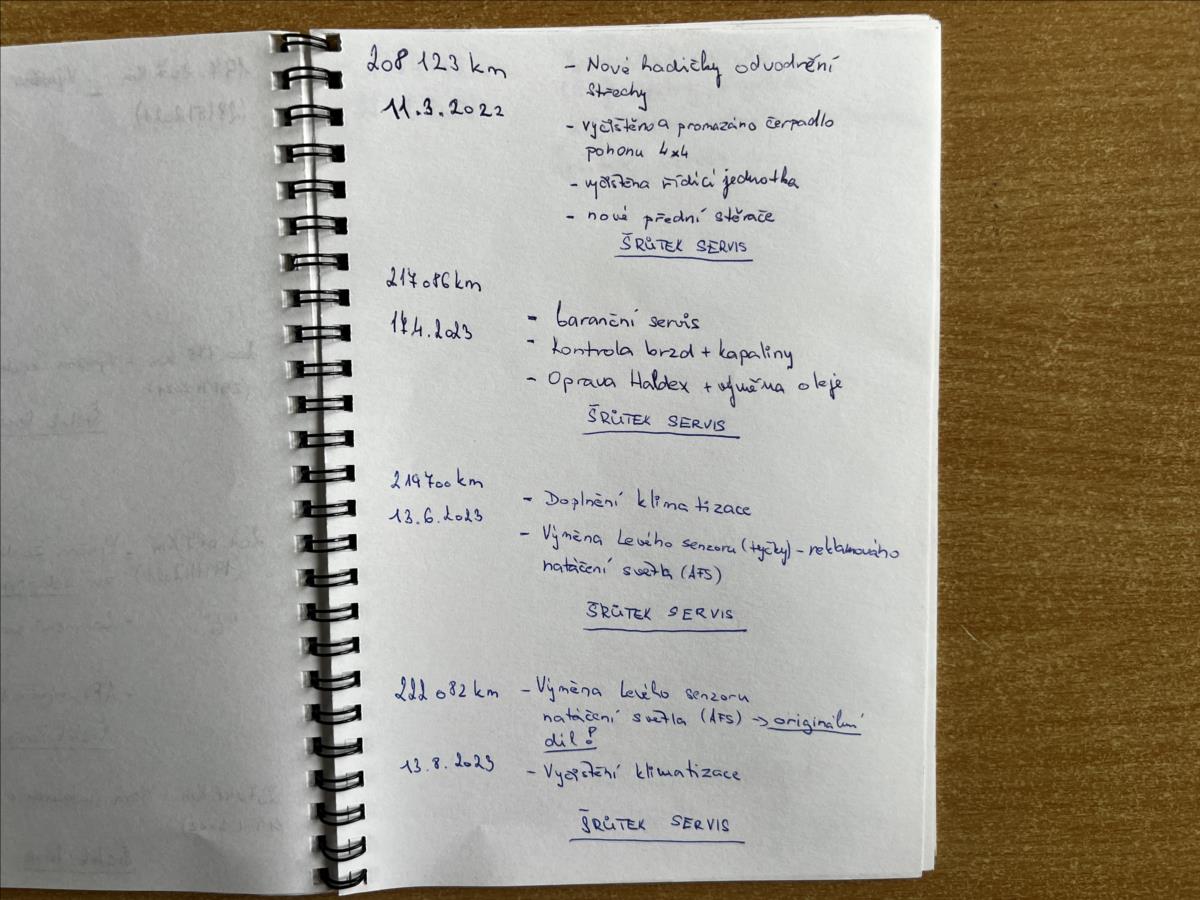 208 123 km
- Nové hadičky odvodnění
střechy
11.3.2022
- vyčištěno a promazáno čerpadlo
pohonu 4x4
- vyčištěna řídící jednotka
- nové přední stěrače
ŠRŮTEK SERVIS
217 086 km
17.4.2023
- Garanční servis
- Kontrola brzd + kapaliny
- Oprava Haldex + výměna oleje
ŠRŮTEK SERVIS
219 700 km
13.6.2023
- Doplnění klimatizace
- Výměna Levého senzoru (tyčky) - reklamového
natáčení světla (AFS)
ŠRŮTEK SERVIS
222 082 km
- Výměna Levého senzoru
natáčení světla (AFS) → originální
díl!
13.8.2023
- Vyčištění klimatizace
ŠRŮTEK SERVIS